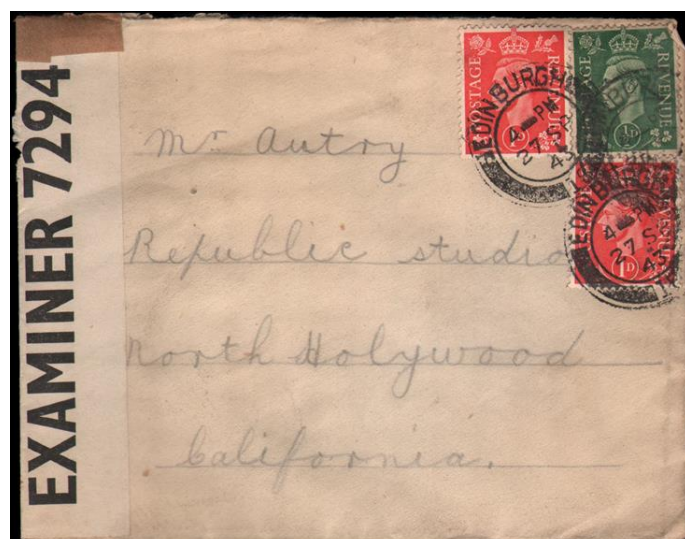 EXAMINER 7294
POSTAGE REVENUE
1D
POSTAGE REVENUE
½D
REVENUE
1D
EDINBURGH
4 - PM
27 SP
43
EDINBURGH
4 - PM
27 S
43
Mr Autry
Republic studio
North Holywood
California.